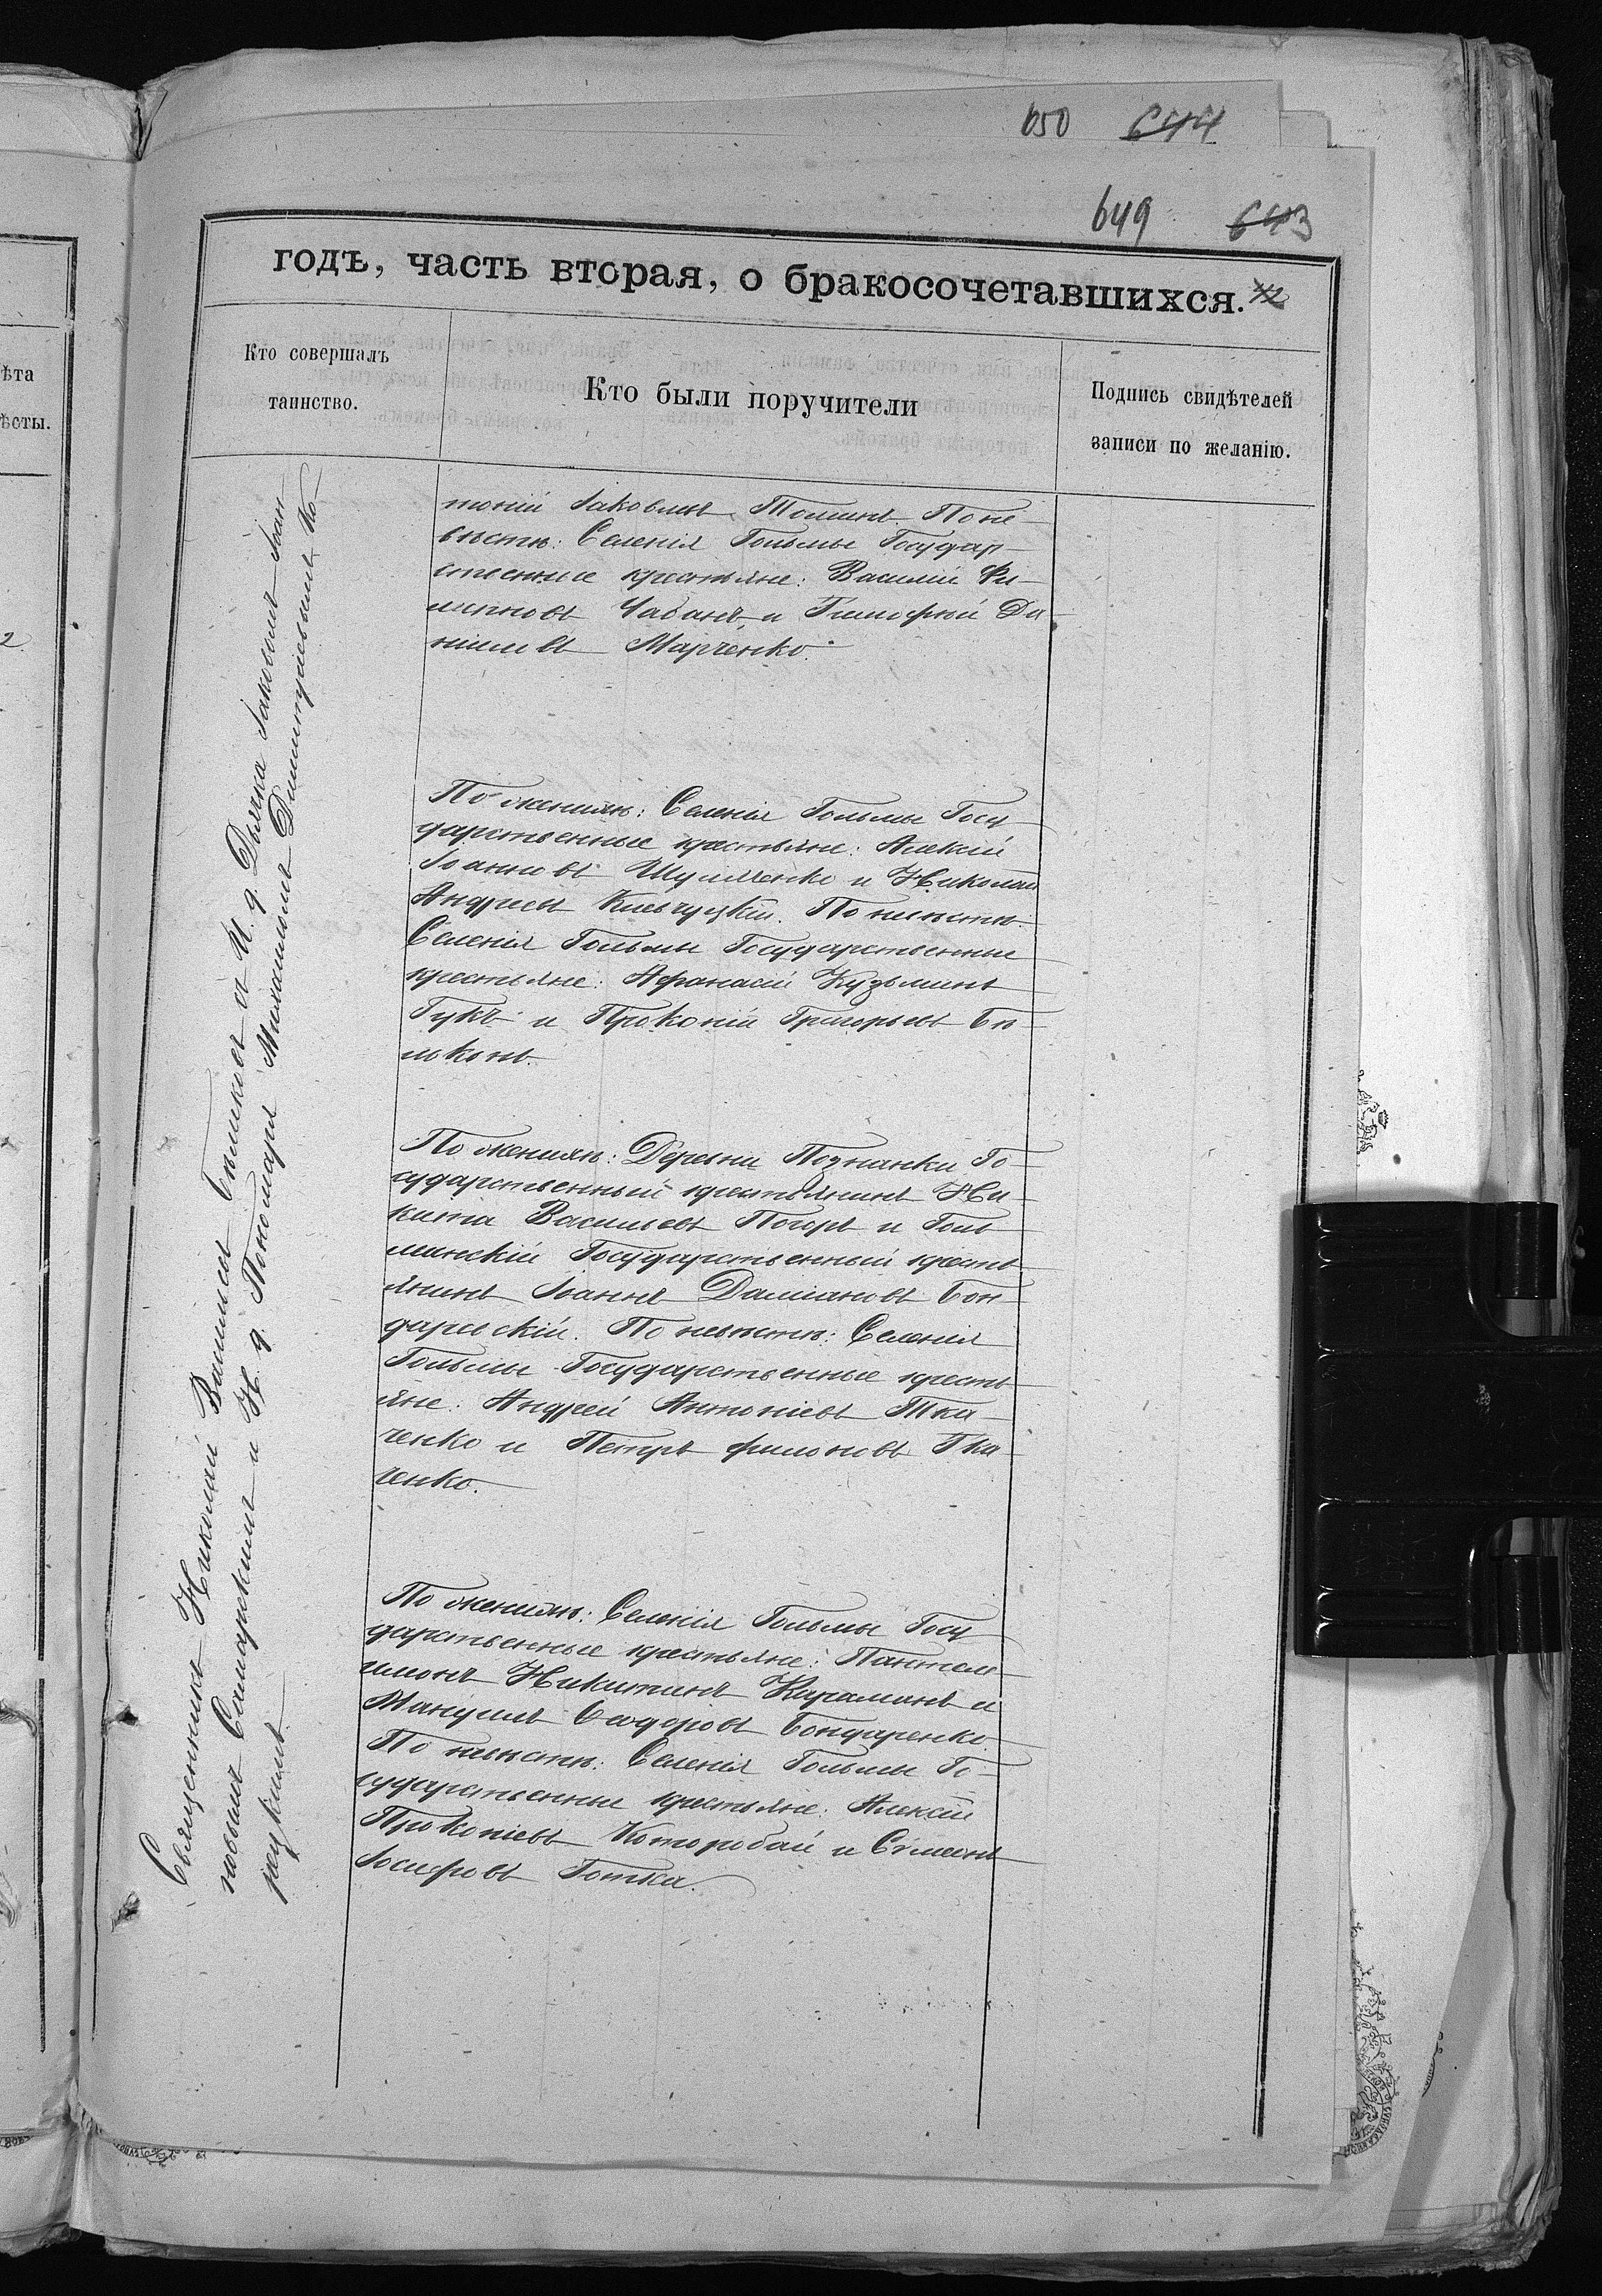 650 644
649 643
годъ, часть вторая, о бракосочетавшихся.
Кто совершалъ
таинство.
Кто были поручители
Подпись свидѣтелей
записи по желанію.
ѣта
ѣсты.
2
Священникъ Николай Васильевъ съ И. д. Дьячка Іаковомъ Іоан
новымъ Самарскимъ и И. д. Пономаря Михаиломъ Димитріевымъ Ко
рецкимъ.
тоній Іаковлевъ Томинъ. По не
вѣстѣ: Селенія Гольмы Государ
ственные крестьяне: Василій Фи
липповъ Чабанъ, и Тимофей Да
ніиловъ Марченко.
По женихѣ: Селенія Гольмы Госу
дарственные крестьяне: Алексій
Іоанновъ Шуляченко и Николай
Андреевъ По невѣстѣ:
Селенія Гольмы Государственные
крестьяне: Афанасій Кузьминъ
Гукъ и Прокопій Григорьевъ Бѣ
локонь.
По женихѣ: Деревни Познанки Го
сударственный крестьянинъ Ни
кита Васильевъ и Голь
мянскій Государственный кресть
янинъ Іоаннъ Даміановъ Бон
даревскій. По невѣстѣ: Селенія
Гольмы Государственные кресть
яне: Андрей Антоніевъ Тка
ченко и Петръ Филоновъ Тка
ченко.
По женихѣ: Селенія Гольмы Госу
дарственные крестьяне: Пантеле
имонъ Никитинъ Караманъ и
Мануилъ Сидоровъ Бондаренко.
По невѣстѣ: Селенія Гольмы Го
сударственные крестьяне: Алексій
Прокопіевъ Которобай и Симеонъ
Іосифовъ Готка.